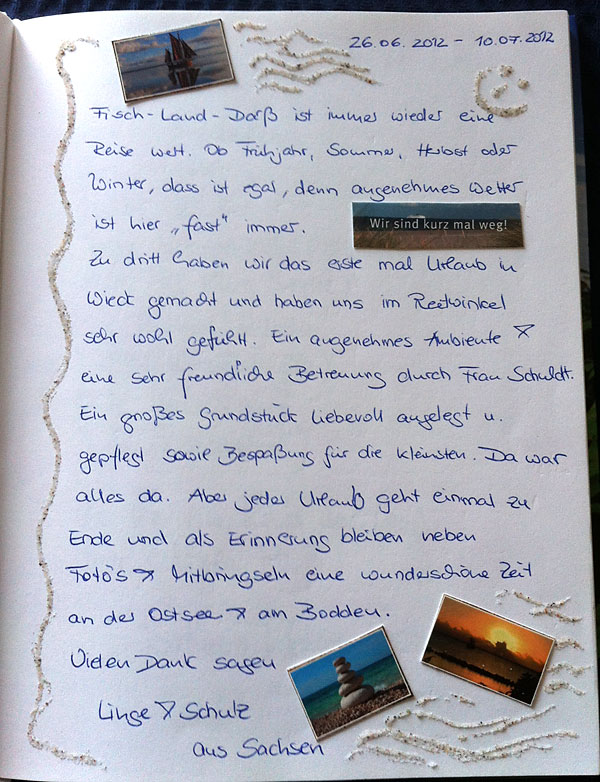 26.06.2012 - 10.07.2012
Fisch-Land-Darß ist immer wieder eine
Reise wert. Ob Frühjahr, Sommer, Herbst oder
Winter, dass ist egal, denn angenehmes Wetter
ist hier „fast" immer.
Wir sind kurz mal weg!
Zu dritt haben wir das erste mal Urlaub in
Wieck gemacht und haben uns im Reetwinkel
sehr wohl gefühlt. Ein angenehmes Ambiente &
eine sehr freundliche Betreuung durch Frau Schuldt.
Ein großes Grundstück liebevoll angelegt u.
gepflegt sowie Bespaßung für die kleinsten. Da war
alles da. Aber jeder Urlaub geht einmal zu
Ende und als Erinnerung bleiben neben
Foto's & Mitbringseln eine wunderschöne Zeit
an der Ostsee & am Bodden.
Vielen Dank sagen
Linge & Schulz
aus Sachsen